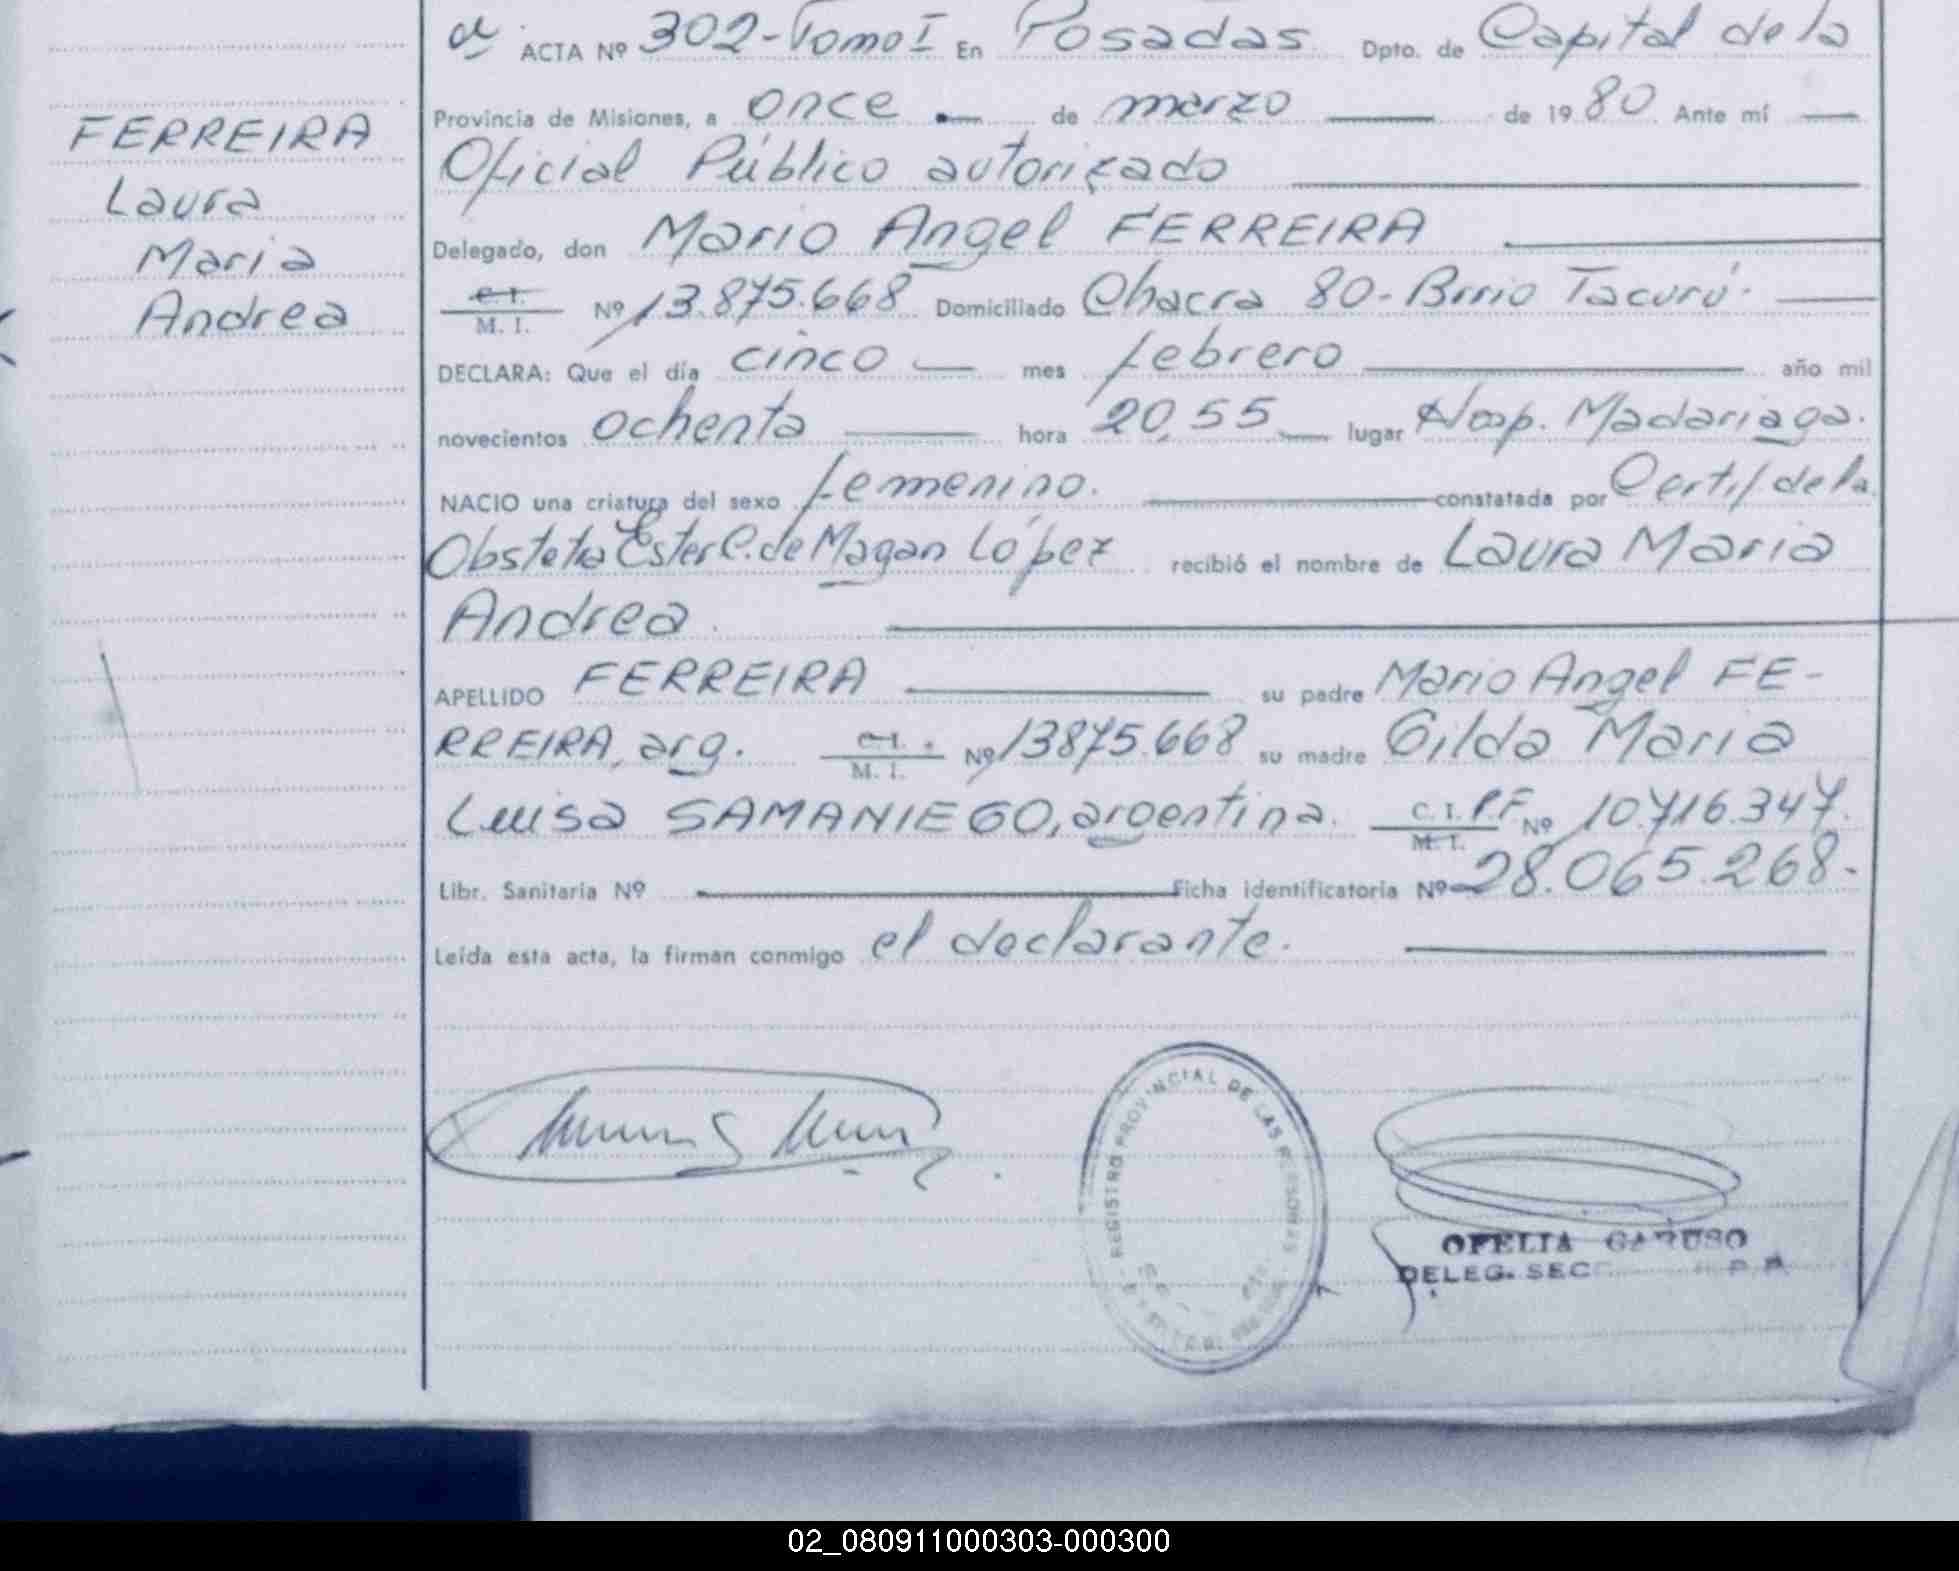 FERREIRA
Laura
Maria
Andrea
ACTA Nº 302-Tomo I En Posadas Dpto. de Capital de la
Provincia de Misiones, a once de marzo de 1980. Ante mí
Oficial Público autorizado
Delegado, don Mario Angel FERREIRA
C. I. M. I. Nº 13.875.668 Domiciliado Chacra 80-Brrio Tacurú.
DECLARA: Que el día cinco mes febrero año mil
novecientos ochenta hora 20,55 lugar Hosp. Madariaga.
NACIO una criatura del sexo femenino. constatada por Certif. de la
Obstetra Ester C. de Magan López recibió el nombre de Laura Maria
Andrea.
APELLIDO FERREIRA su padre Mario Angel FE-
RREIRA, arg. C. I. M. I. Nº 13875.668 su madre Gilda Maria
Luisa SAMANIEGO, argentina. C. I. P.F. M. I. Nº 10.716.347.
Libr. Sanitaria Nº Ficha identificatoria Nº 28.065.268.-
Leída esta acta, la firman conmigo el declarante.
REGISTRO PROVINCIAL DE LAS PERSONAS
OFELIA CARUSO
DELEG. SEC
02_080911000303-000300